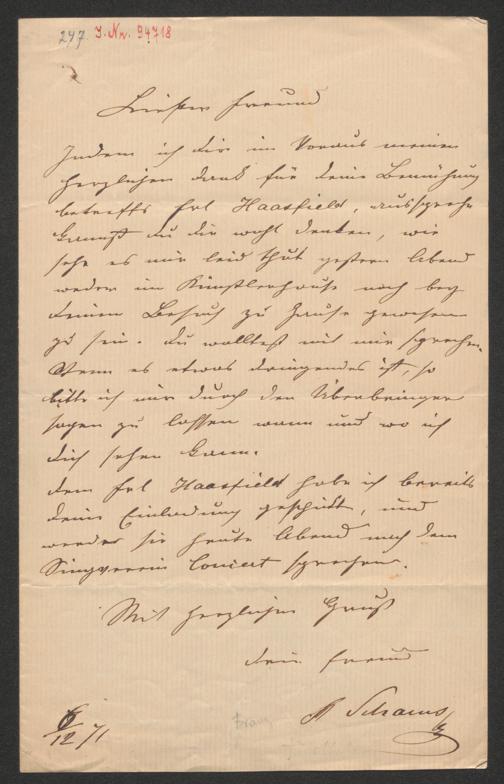 247 J. Nr. 94718
Liebster Freund
Indem ich dir im Voraus meinen
herzlichen Dank für deine Bemühung
betreffs Frl Haasfield, ausspreche
kannst du dir wohl denken, wie
sehr es mir leid thut gestern Abend
weder im Künstlerhause noch bey
deinem Besuch zu Hause gewesen
zu sein. Du wolltest mit mir sprechen.
Wenn es etwas dringendes ist, so
bitte ich mir durch den Überbringer
sagen zu lassen wann und wo ich
dich sehen kann.
Dem Frl Haasfield habe ich bereits
deine Einladung geschickt, und
werde sie heute Abend nach dem
Singverein Concert sprechen.
Mit herzlichem Gruß
dein Freund
Schams
6/12 71